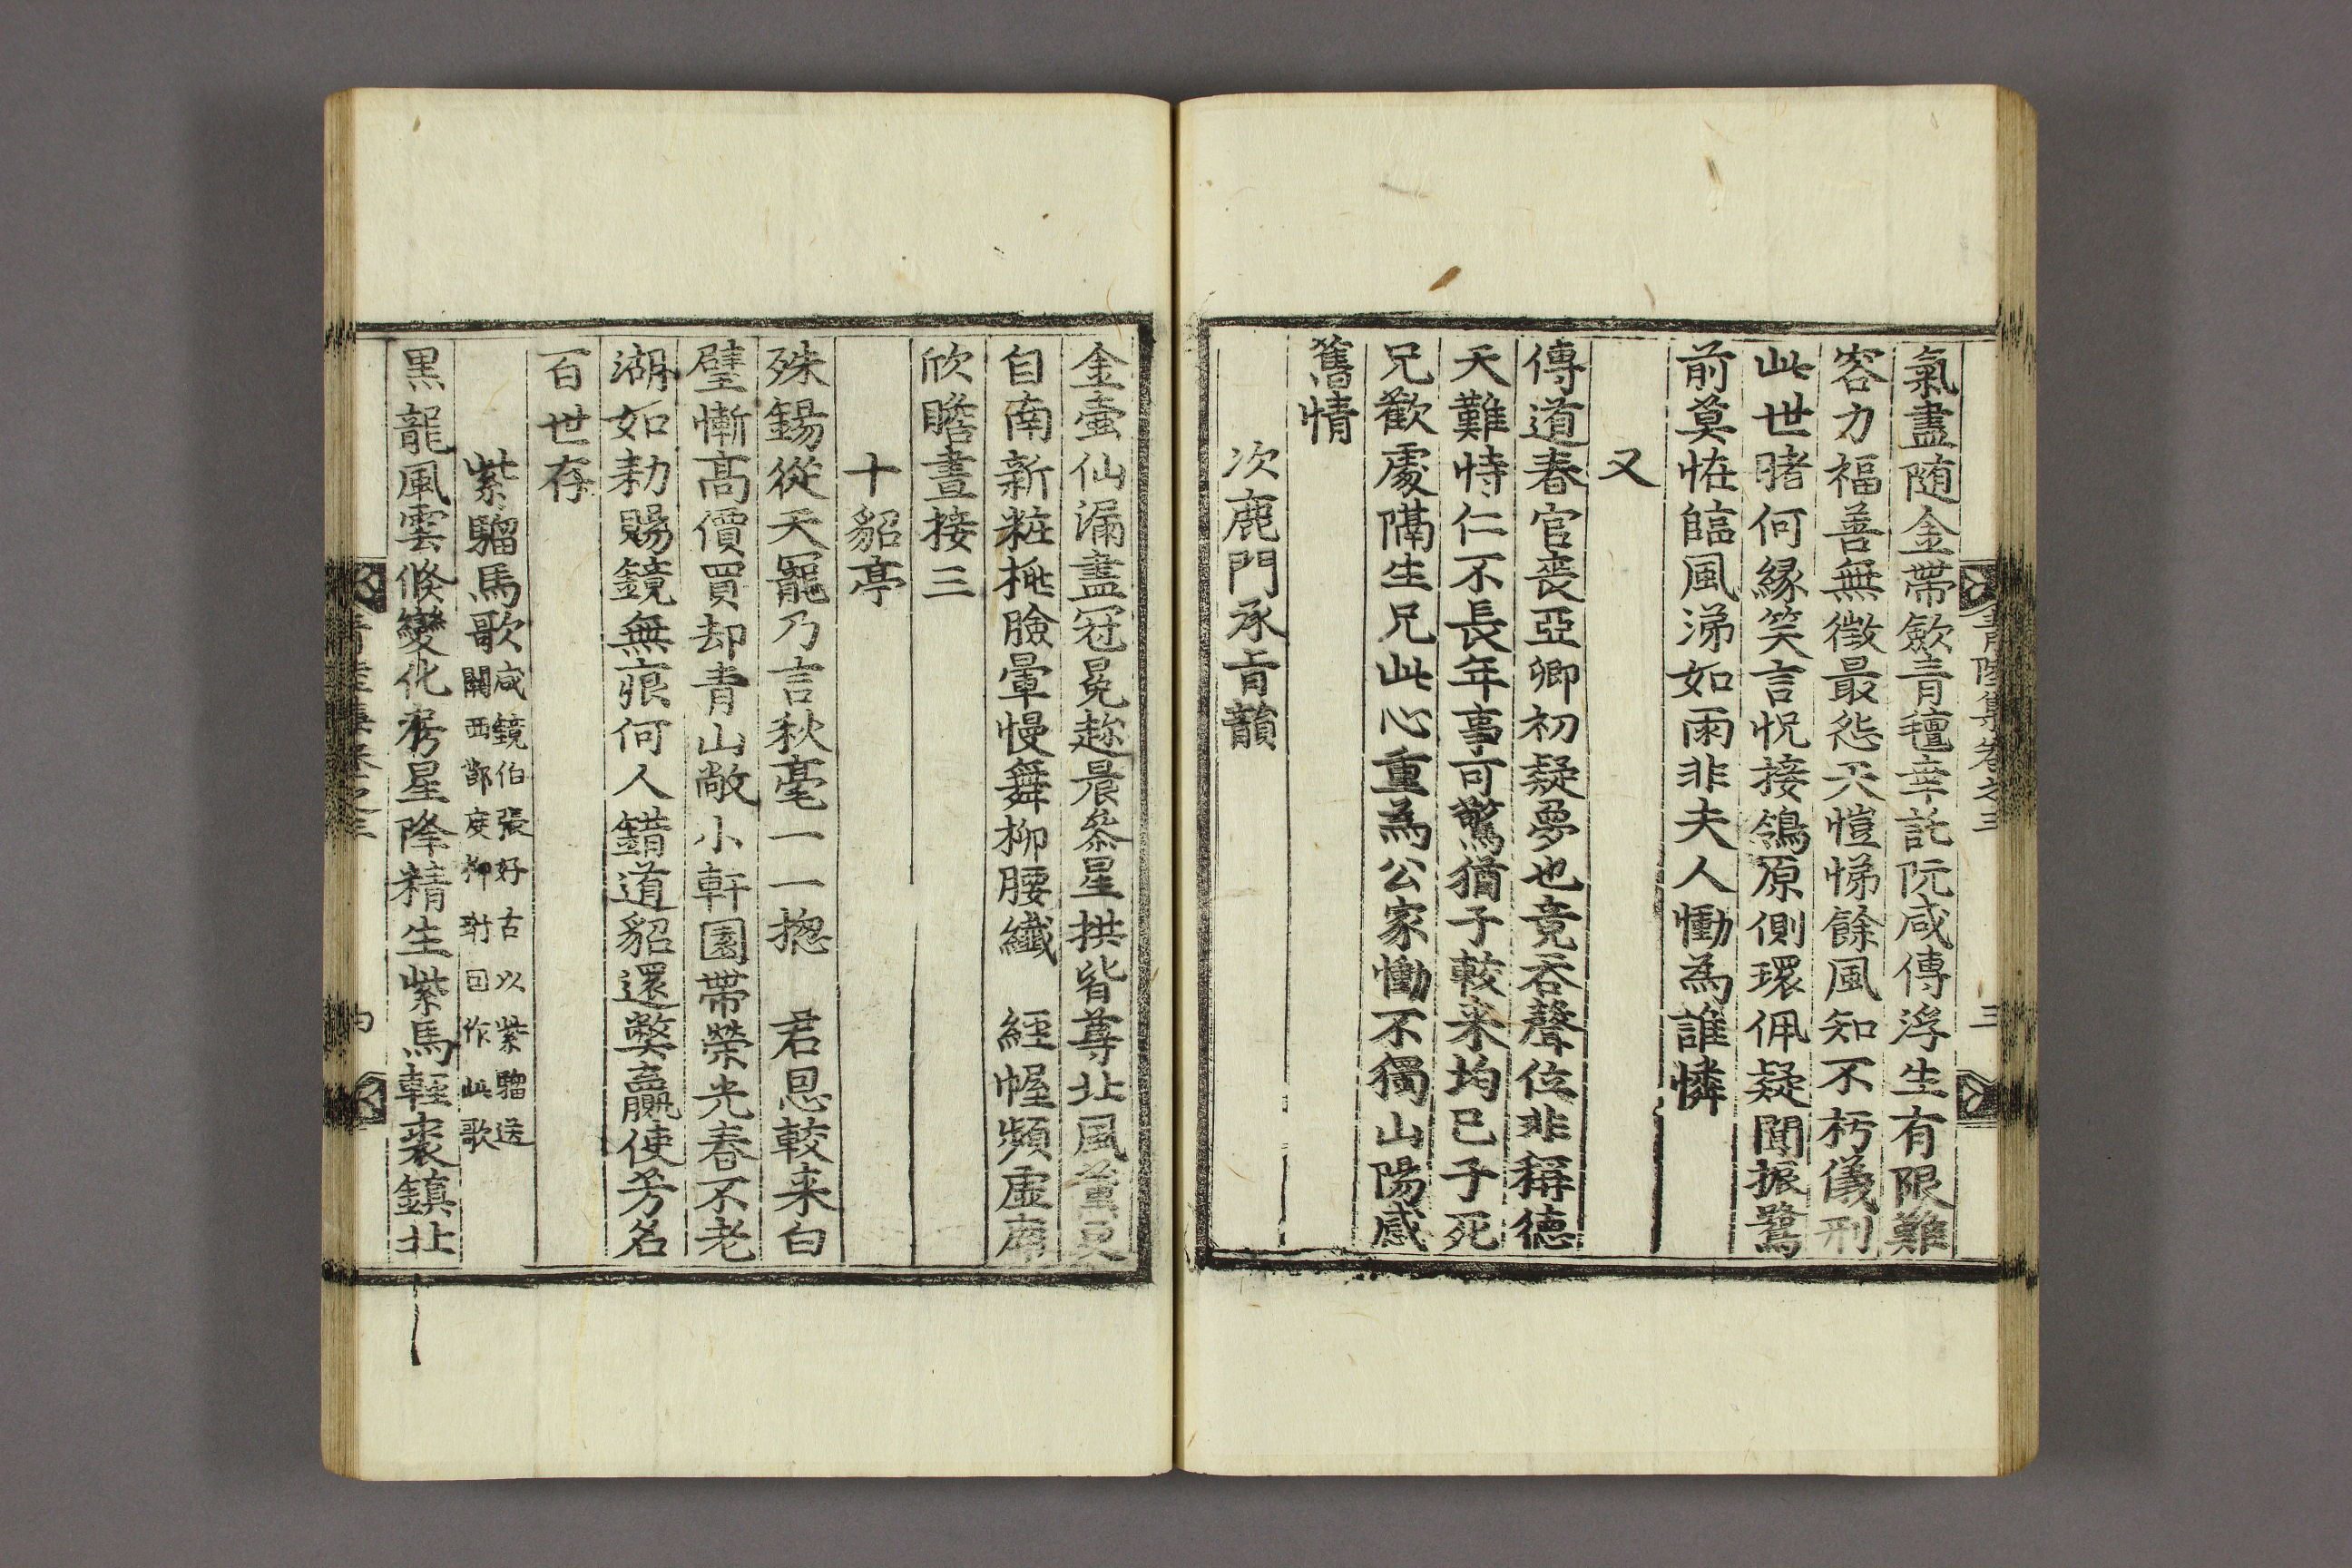 青陸集卷之三 三
氣盡随金帶歛青氊幸託阮咸傳浮生有限難
容力福善無徵最怨天愷悌餘風知不朽儀刑
此世睹何緣笑言怳接鴒原側環佩疑聞振鷺
前莫恠臨風涕如雨非夫人慟為誰憐
又
傳道春官喪亞卿初疑夢也竟呑聲位非稱德
天難恃仁不長年事可驚猶子較来均已子死
兄歡處隔生兄此心重為公家慟不獨山陽感
舊情
次鹿門承㫖韻
金壷仙漏盡冠冕趂晨叅星拱皆尊北風薫更
自南新粧桃臉暈慢舞柳腰纖 經幄頻虛席
欣瞻晝接三
十貂亭
殊錫從天寵乃言秋毫一一揔 君恩較来白
璧慚高價買却青山敞小軒園帶榮光春不老
湖如勑賜鏡無痕何人錯道貂還弊贏使芳名
百世存
紫騮馬歌 咸鏡伯張好古以紫騮送
關西鄭度卿對回作此歌
黒龍風雲倐變化房星降精生紫馬輕裘鎮北